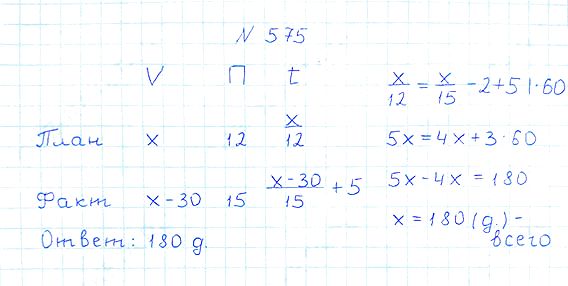 N 575
V П t
План x 12 x/12
Факт x-30 15 x-30/15 + 5
Ответ: 180 д.
x/12 = x/15 - 2 + 5 | · 60
5x = 4x + 3 · 60
5x - 4x = 180
x = 180 (д.) -
всего